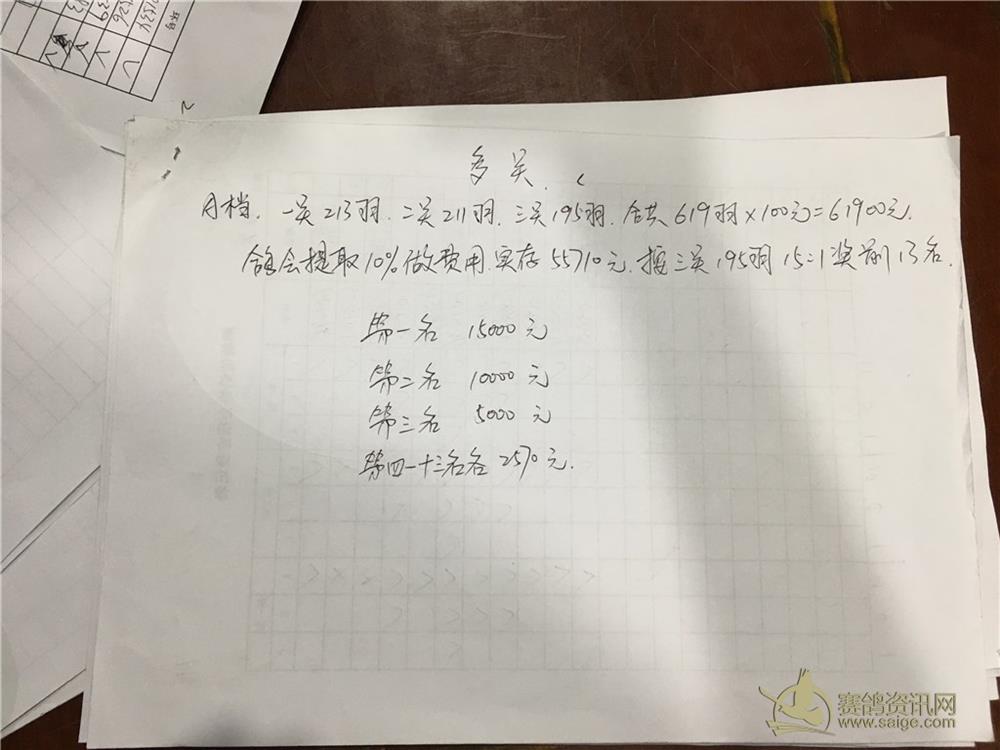 多关.
A档. 一关213羽. 二关211羽. 三关195羽. 合共619羽×100元=61900元.
鸽会提取10%做费用.实存55710元.按三关195羽15:1奖前13名.
第一名 15000元
第二名 10000元
第三名 5000元
第四一十三名各2570元.
赛鸽资讯网
www.saige.com